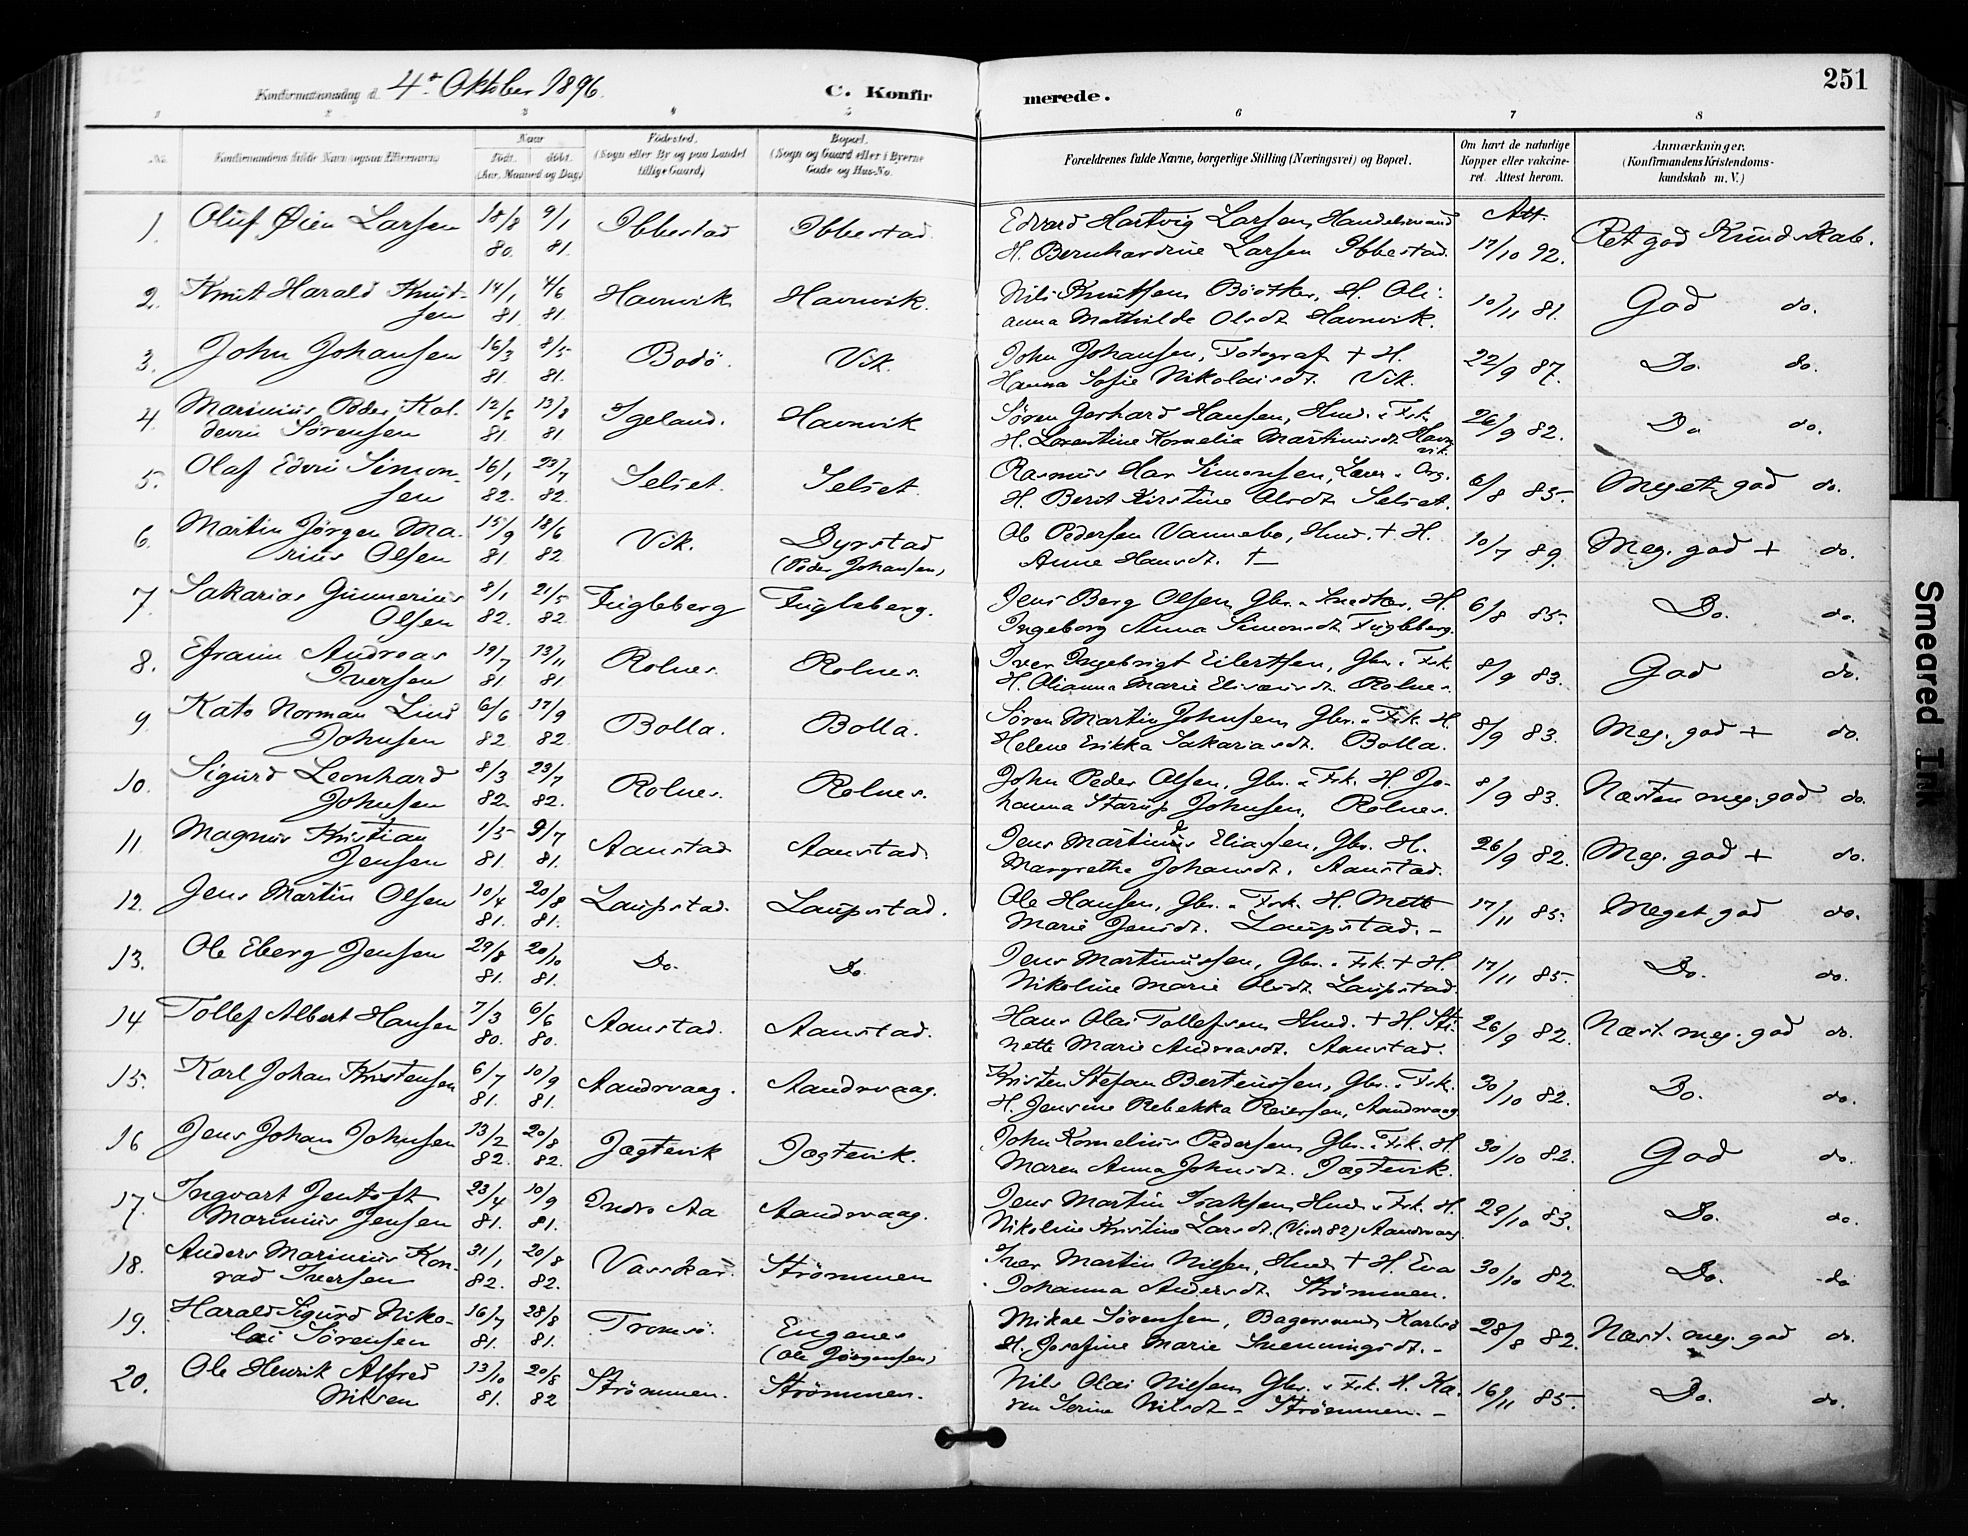 Konfirmationsdag d. 4de Oktober 1896.
C. Konfirmerede.
251
1 2 3 4 5 6 7 8
No.
Konfirmandens fulde Navn (ogsaa Efternavn)
Naar født. døbt. (Aar, Maaned og Dag)
Fødested. (Sogn eller By og paa Landet tillige Gaard)
Bopæl. (Sogn og Gaard eller i Byerne Gade og Hus-No.
Forældrenes fulde Navne, borgerlige Stilling (Næringsvei) og Bopæl.
Om havt de naturlige Kopper eller vakcineret. Attest herom.
Anmærkninger. (Konfirmandens Kristendomskundskab m. V.)
1. Oluf Øien Larsen 18/8 80. 9/1 81. Ibbestad Ibbestad. Edvard Hartvig Larsen, Handelsmand
H. Bernhardine Larsen Ibbestad. Att. 17/10 92. Ret god Kundskab.
2. Knut Harald Knut- 14/1 81. 4/6 81. Havnvik Havnvik. Nils Knutsen Bödker, H. Oli-
sen anna Mathilde Olsdt. Havnvik. 10/11 81. God do.
3. John Johansen 16/3 81. 8/5 81. Bodö. Vik. John Johansen, Fotograf + H.
Hanna Sofie Nikolaisdt. Vik. 22/9 87. Do. do.
4. Marinius Peder Kal- 12/5 81. 13/8 81. Igeland. Havnvik Søren Gerhard Hansen, Hmd. & Fsk.
denu Sørensen H. Lorentine Kornelia Martinusdt. Havnvik. 26/9 82. Do do.
5. Olaf Edvin Simon- 16/1 82. 23/7 82. Selset. Selset. Rasmus Har Simonsen, Lærer & Org.
sen H. Berit Kirstine Olsdt. Selset. 6/8 85. Meget god do.
6. Martin Jørgen Ma- 15/9 81. 18/6 82 Vik. Dyrstad Ole Pedersen Vannebo, Hmd. + H.
rius Olsen (Peder Johansen) Anne Hansdt. + 10/7 89. Meg. god + do.
7. Sakarias Gunnerius 8/1 82. 21/5 82. Fugleberg Fugleberg. Jens Berg Olsen, Gbr. & Snedker, H.
Olsen Ingeborg Anna Simonsdt. Fugleberg. 6/8 85. Do. do.
8. Efraim Andreas 19/7 81 13/11 81 Rolnes. Rolnes. Iver Ingebrigt Eilertsen, Gbr. & Fsk.
Iversen H. Olianna Marie Elisæusdt. Rolnes. 8/9 83. God do.
9. Kato Norman Lind 6/6 82. 17/9 82. Bolla. Bolla. Søren Martin Johnsen, Gbr. & Fsk. H.
Johnsen Helene Erikka Sakariasdt. Bolla. 8/9 83. Meg. god + do.
10. Sigurd Leonhard 8/3 82. 23/7 82. Rolnes. Rolnes. John Peder Olsen, Gbr. & Fsk. H. Jo-
Johnsen hanna Starup Johnsen, Rolnes. 8/9 83. Næsten meg. god do.
11. Magnus Kristian 1/5 81. 9/7 81. Aanstad Aanstad. Jens Martinus Eliassen, Gbr. H.
Jensen Margrethe Johansdt. Aanstad. 26/9 82. Meg. god + do.
12. Jens Martin Olsen 10/4 81. 20/8 81. Laupstad. Laupstad. Ole Hansen, Gbr. & Fsk. H. Mette
Marie Jensdt. Laupstad. - 17/11 85. Meget god do.
13. Ole Eberg Jensen 29/8 81. 20/10 81. Do. Do. Jens Martinussen, Gbr. & Fsk. + H.
Nikoline Marie Olsdt. Laupstad 17/11 85. Do. do.
14 Tollef Albert Hansen 7/3 80. 6/6 80. Aanstad. Aanstad. Hans Olai Tollefsen Hmd. + H. Sti-
nette Marie Andreasdt. Aanstad. 26/9 82. Næst. meg. god do.
15. Karl Johan Kristensen 6/7 81. 10/9 81. Aandrvaag. Aandrvaag. Kristen Stefan Berteussen, Gbr. & Fsk.
H. Jensine Rebekka Reiersen, Aandrvaag 30/10 82. Do. do.
16 Jens Johan Johnsen 13/2 82. 20/8 82. Jægtevik Jægtevik. John Kornelius Pedersen, Gbr. & Fsk. H.
Maren Anna Johnsdt. Jægtevik. 30/10 82. God do.
17. Ingvart Jentoft 23/4 81. 10/9 81. Indre Aa Aandrvaag. Jens Martin Isaksen, Hmd. & Fsk. H.
Marinius Jensen Nikoline Kristine Larsdt. (Viet 82) Aandrvaag. 29/10 83. Do. do.
18. Anders Marinius Kon- 31/1 82. 20/8 82. Vasskar. Strömmen Iver Martin Nilsen, Hmd + H. Eva
rad Iversen Johanna Andersdt. Strömmen. 30/10 82. Do. do
19. Harald Sigurd Niko- 16/7 81. 28/8 81. Tromsö. Engenes Mikal Sørensen, Bagersvend Karlsö
lai Sørensen (Ole Jörgensen) H. Josefine Marie Svenningsdt. - 28/8 82. Næst. meg. god do.
20. Ole Henrik Alfred 13/10 81. 20/8 82 Strömmen. Strömmen. Nils Olai Nilsen, Gbr. & Fsk. H. Ka-
Nilsen ren Serine Nilsdt - Strömmen. - 16/11 85. Do. do.
Smeared Ink